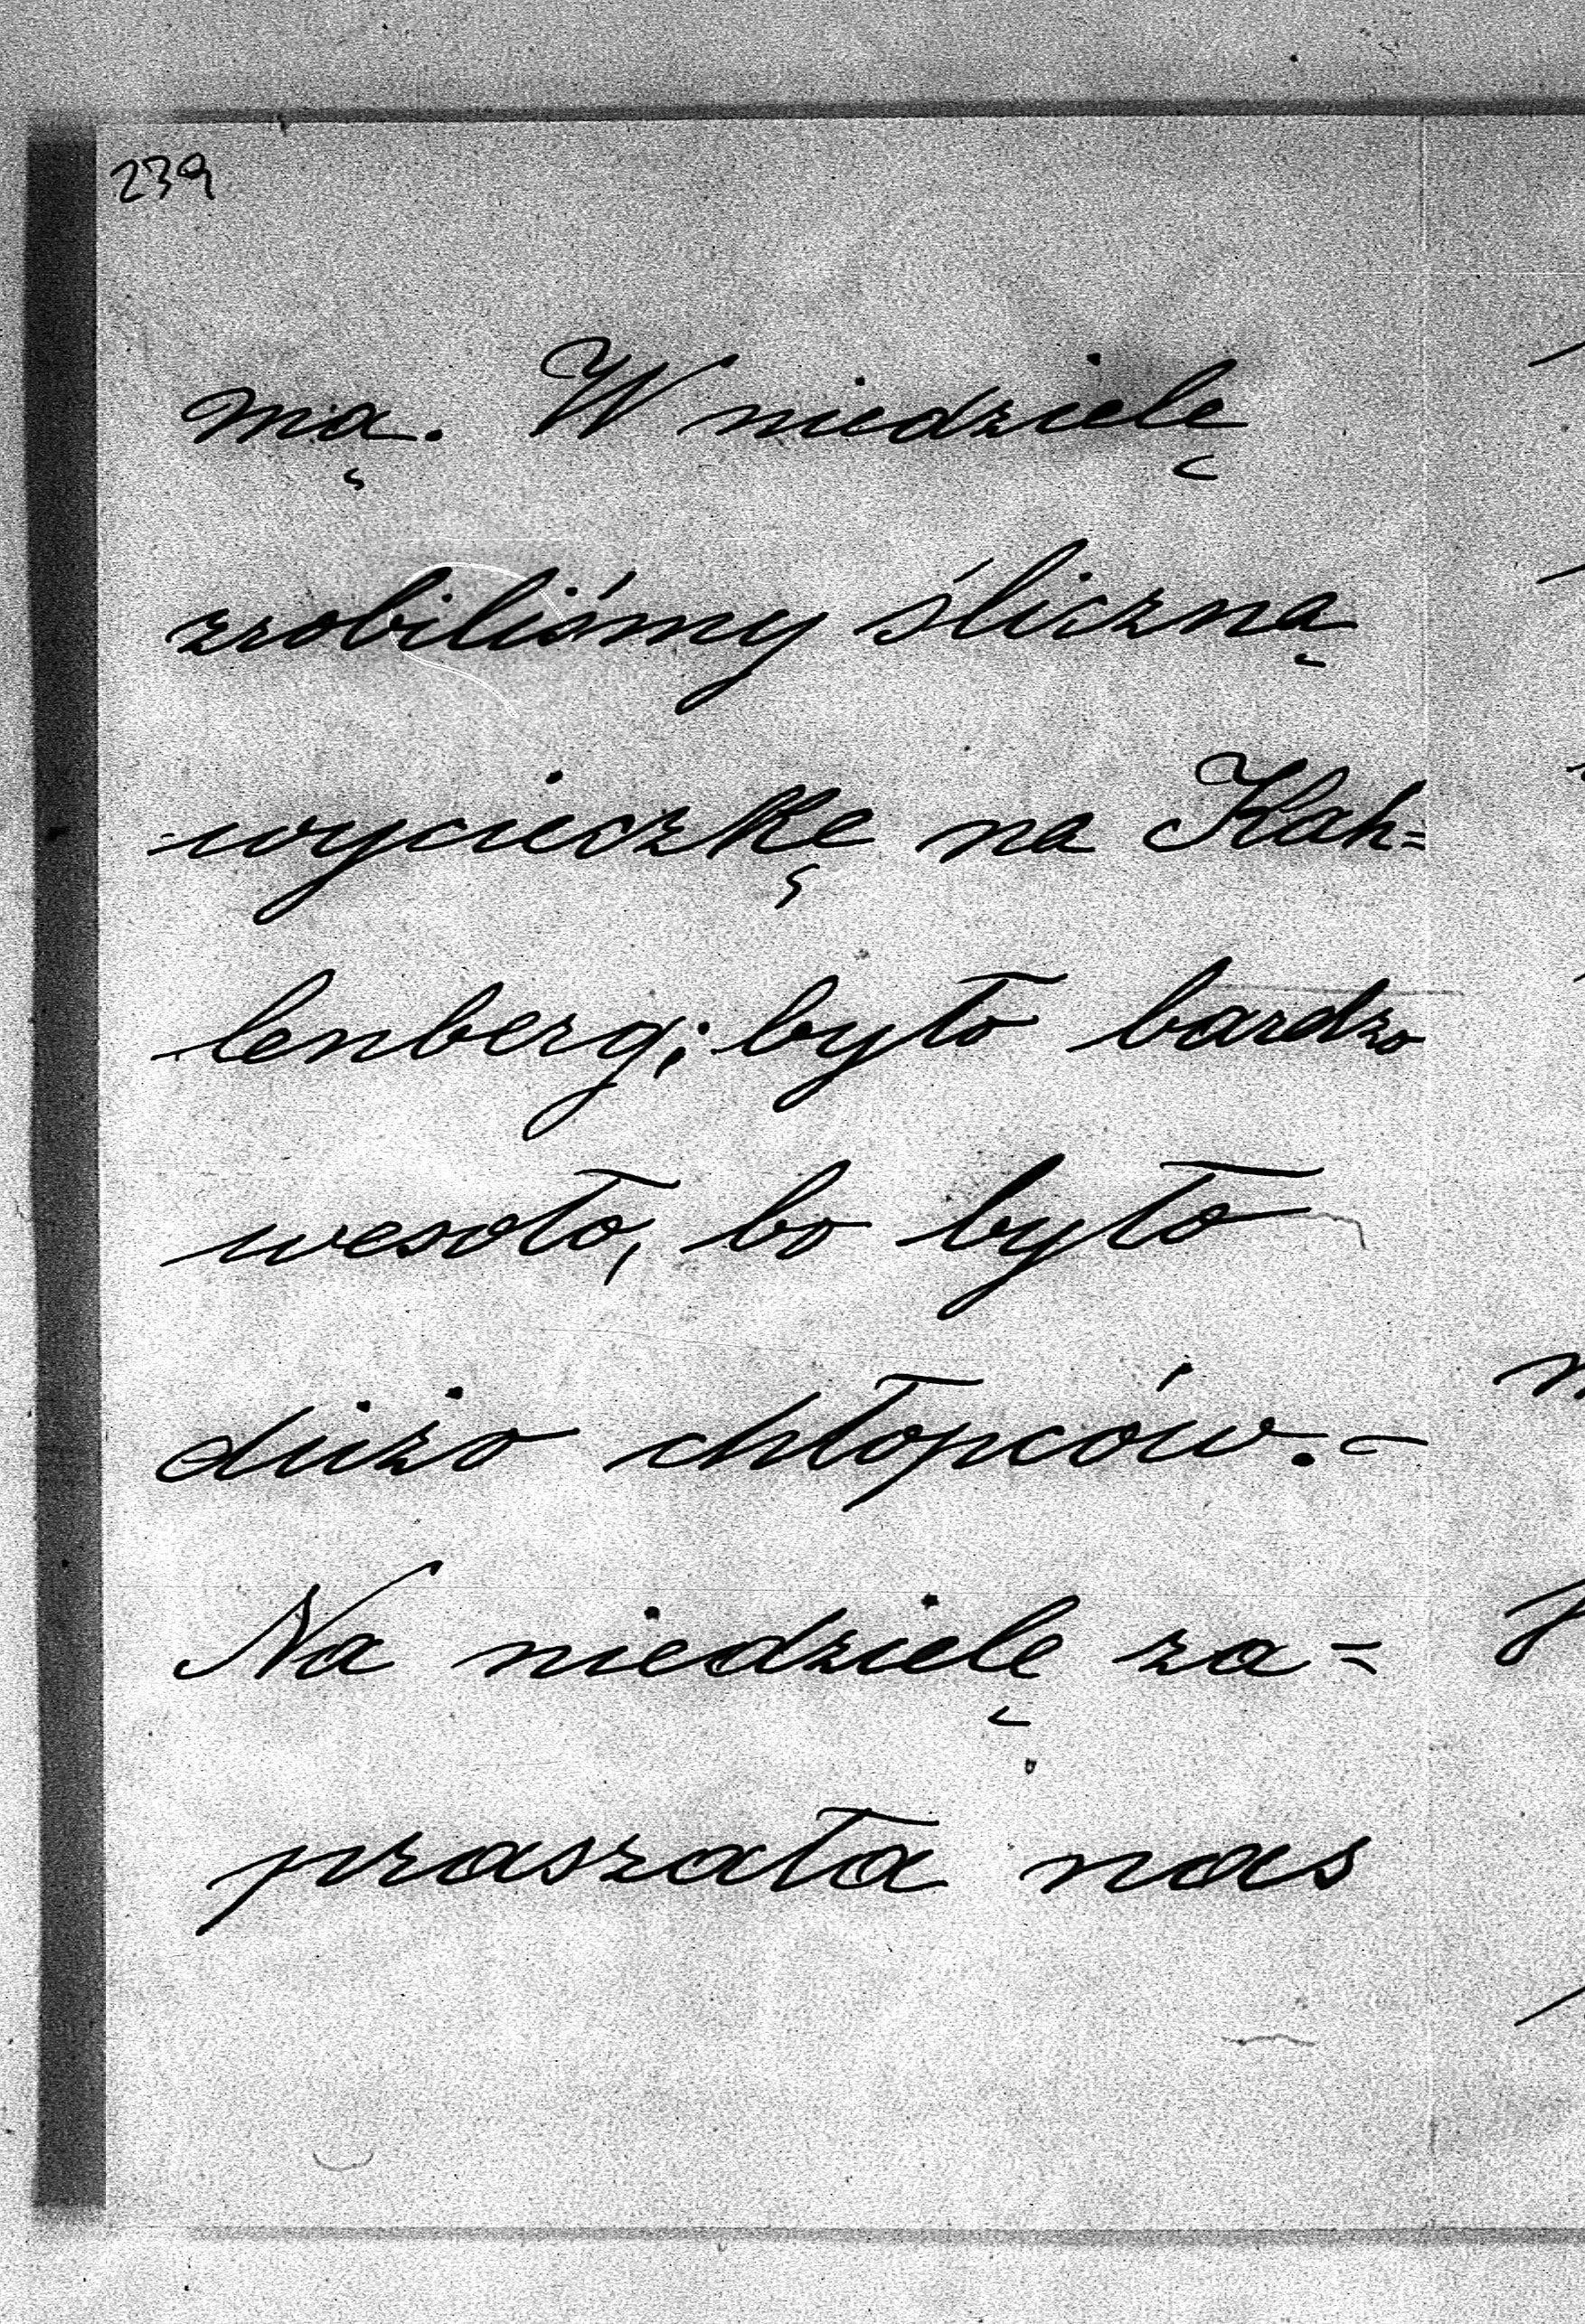 239
mą. W niedzielę
zrobiliśmy śliczną
wycieczkę na Kah=
lenberg; było bardzo
wesoło, bo było
dużo chłopców.-
Na niedzielę za=
praszała nas